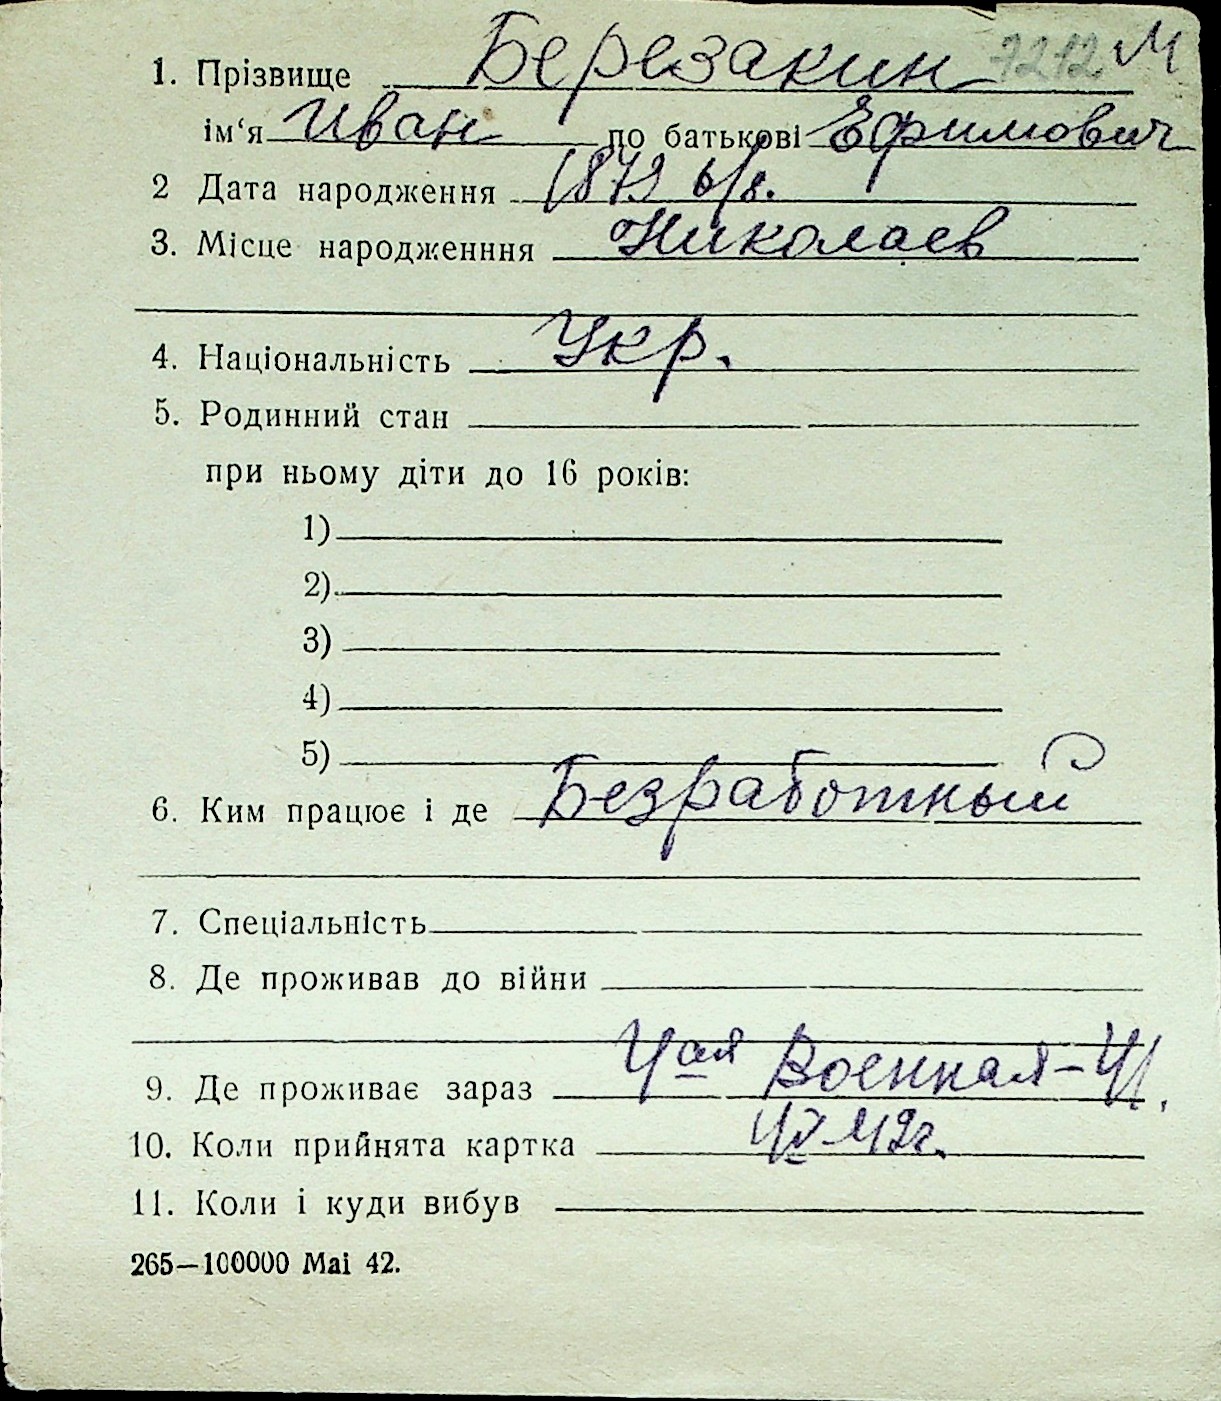 1. Прізвище Березакин 7212 М
ім‘я Иван по батькові Ефимович
2 Дата народження 1879
3. Місце народженння Николаев
4. Національність Укр.
5. Родинний стан
при ньому діти до 16 років:
1)
2)
3)
4)
5)
6. Ким працює і де Безработный
7. Спеціальність
8. Де проживав до війни
9. Де проживає зараз 4ая Военная-
10. Коли прийнята картка 42г.
11. Коли і куди вибув
265—100000 Mai 42.